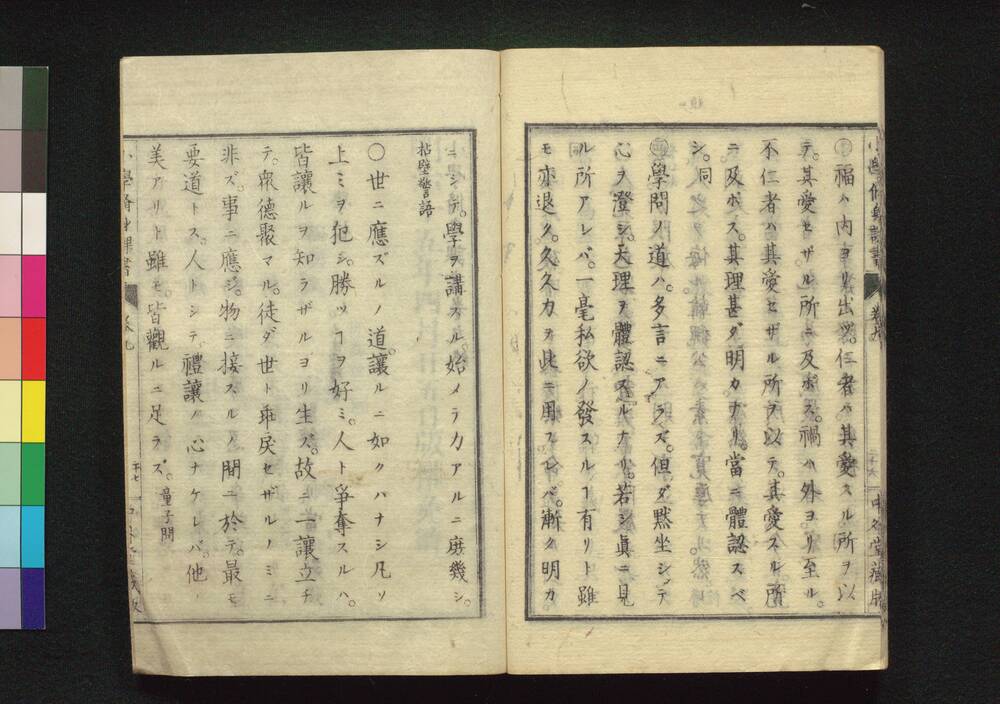 小學修身課書 卷九 中外堂藏版
福ハ内ヨリ出ヅ。仁者ハ其愛スル所ヲ以
テ。其愛セザル所ニ及ボス。禍ハ外ヨリ至ル。
不仁者ハ其愛セザル所ヲ以テ。其愛スル所
ニ及ボス。其理甚ダ明カナリ。當ニ體認スベ
シ。同
學問ノ道ハ。多言ニアラズ。但ダ黙坐シテ
心ヲ澄シ。天理ヲ體認スルナリ。若シ眞ニ見
ル所アレバ。一毫私欲ノ發スルヿ有リト雖
モ亦退ク。久久力ヲ此ニ用スレバ。漸ク明カ
ニシテ。學ヲ講スル始メテ力アルニ庶幾シ。
拈壁警語
〇世ニ應ズルノ道。讓ルニ如クハナシ凡ソ
上ミヲ犯シ。勝ツヿヲ好ミ。人ト爭奪スルハ。
皆讓ルヲ知ラザルヨリ生ズ。故ニ一讓立チ
テ。衆德聚マル。徒ダ世ト乖戾セザルノミニ
非ズ。事ニ應ジ。物ニ接スルノ間ニ於テ。最モ
要道トス。人トシテ。禮讓ノ心ナケレバ。他ノ
美アリト雖モ。皆觀ルニ足ラズ。童子問
小學修身課書 卷九